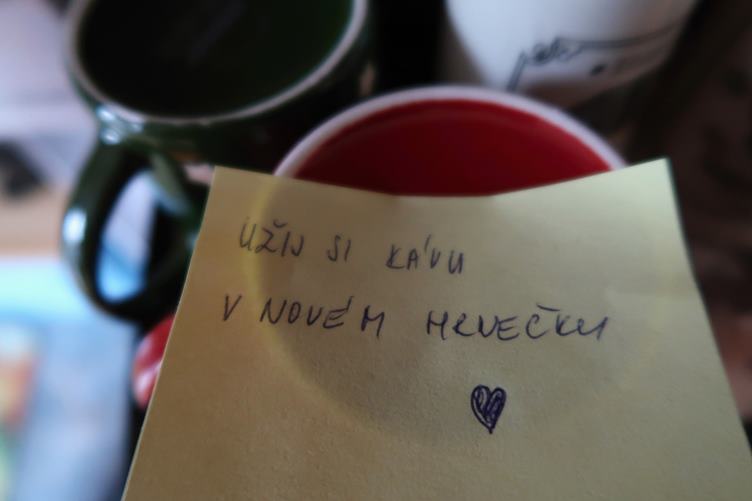 UŽIJ SI KÁVU
V NOVÉM HRNEČKU